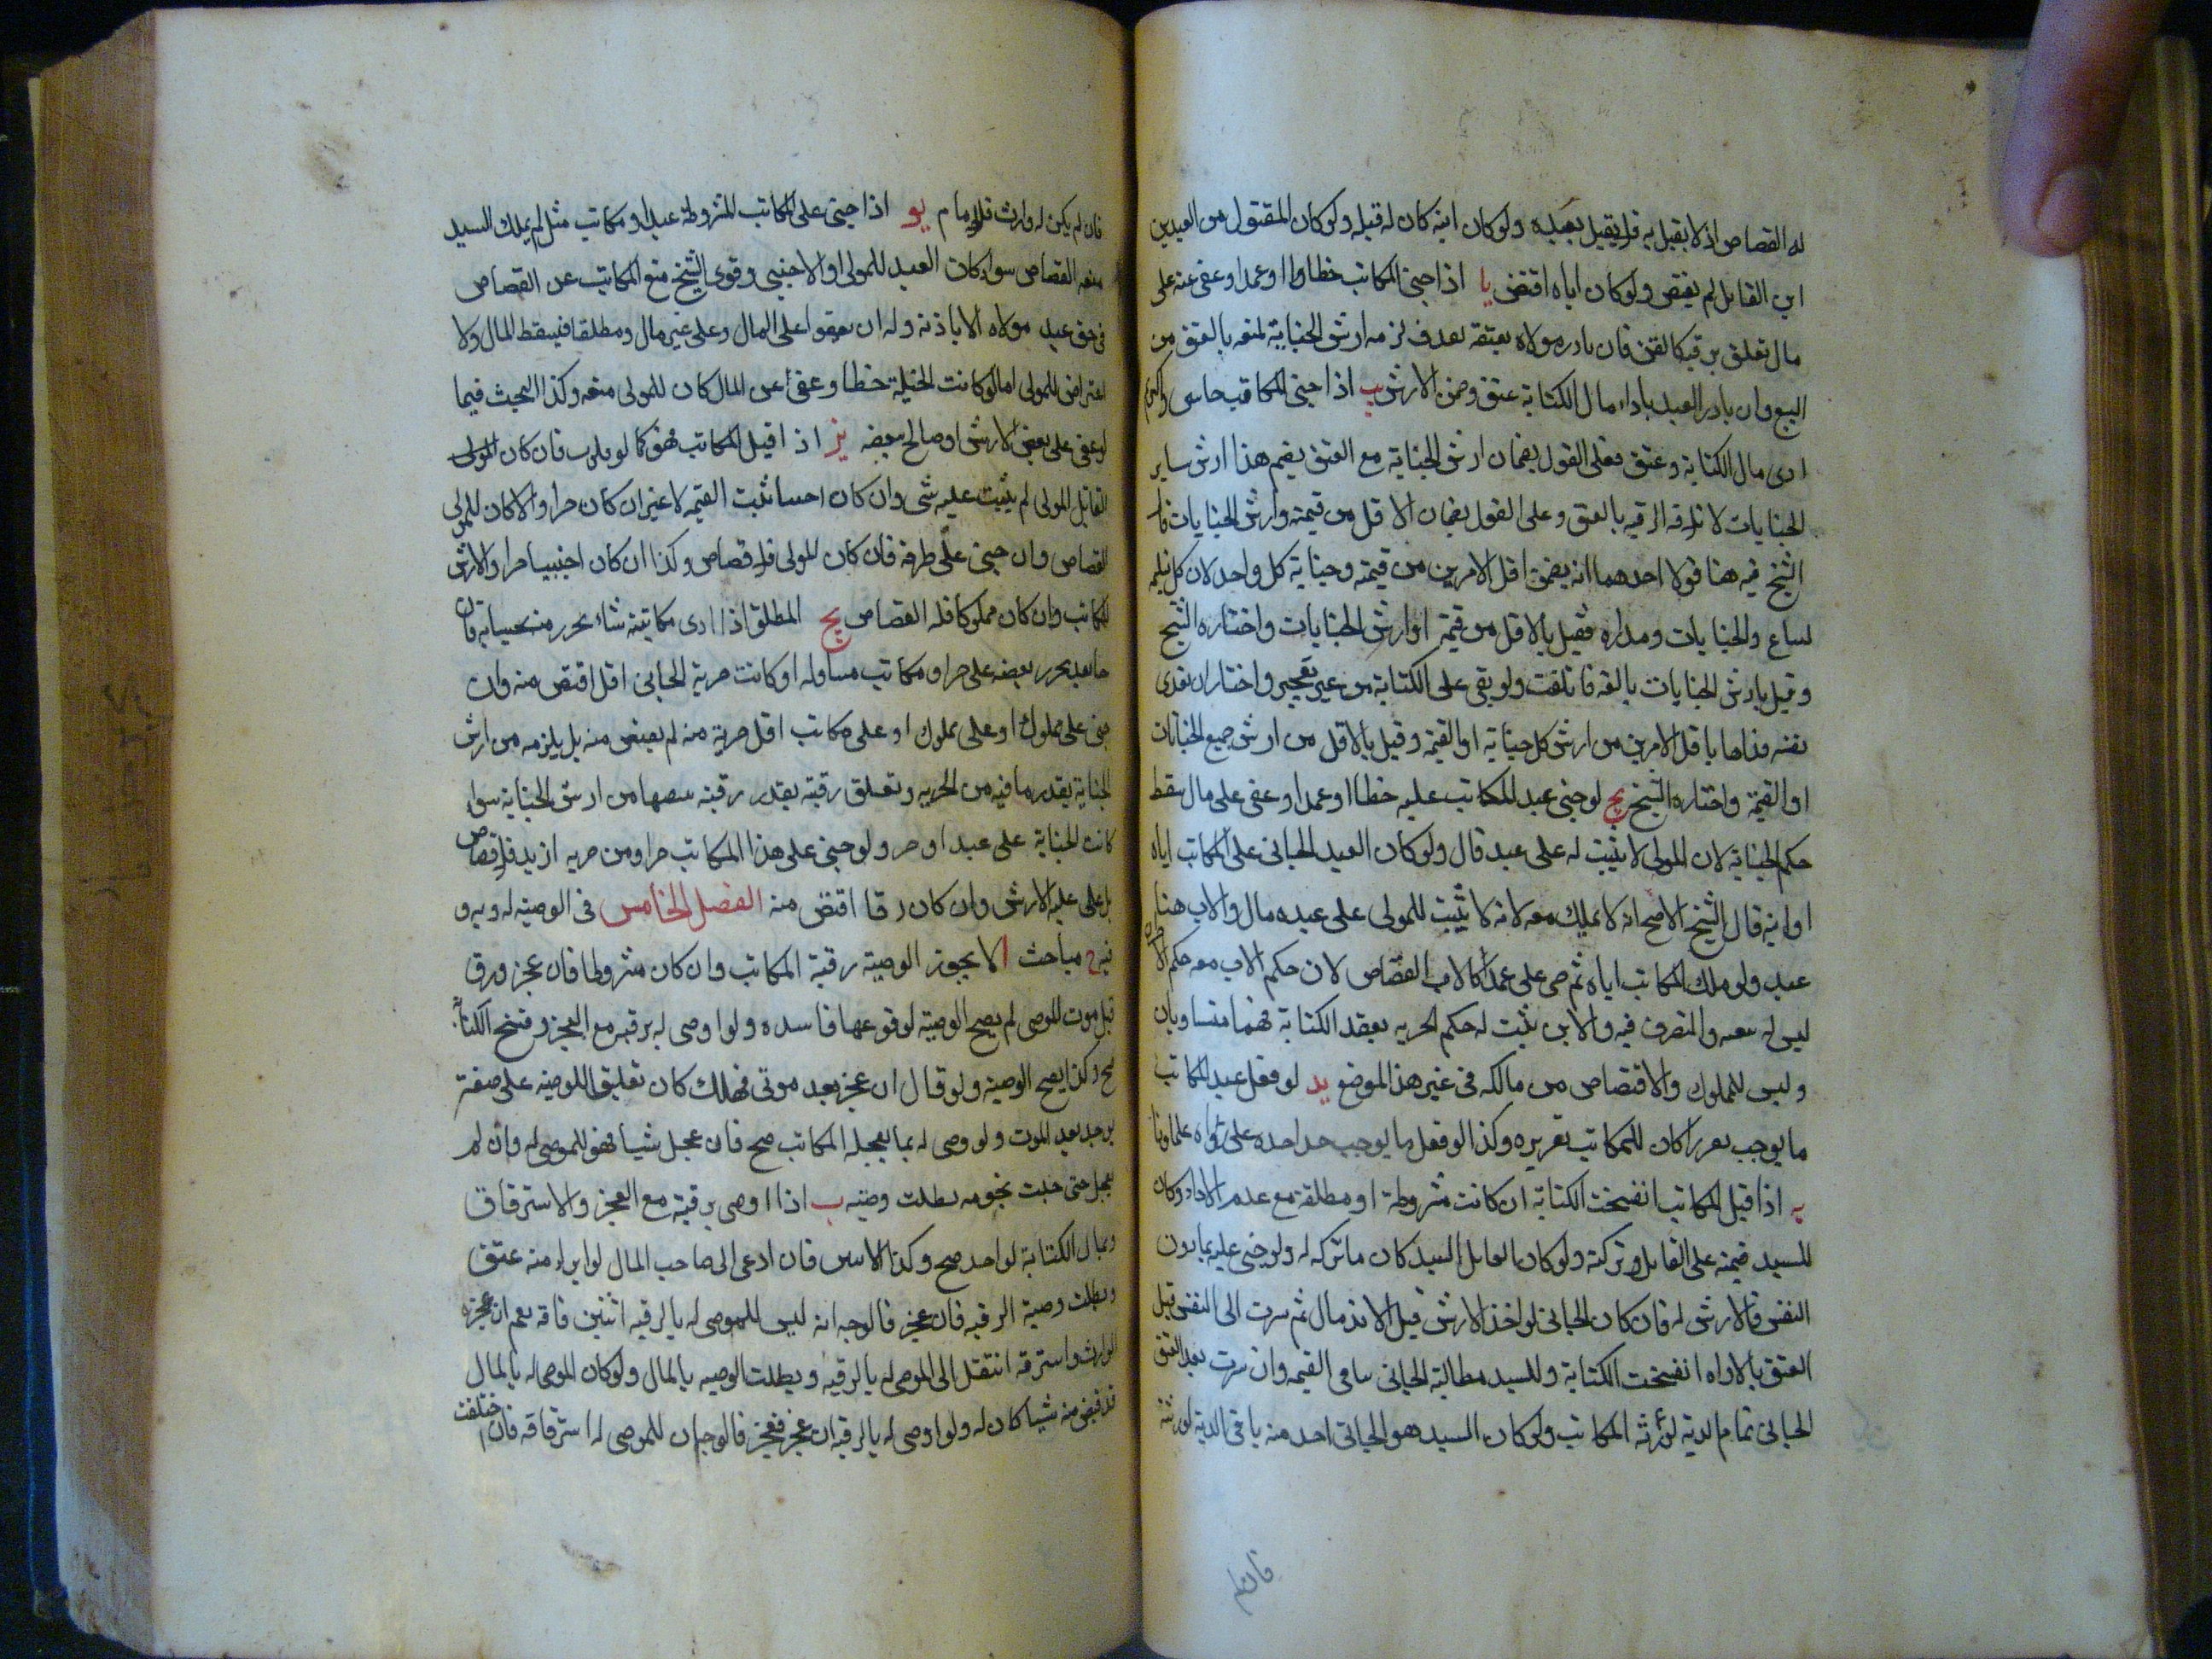 له القصاص اذ لا يقبل به فلا يقبل بعبده ولو كان ابنه كان له قتله ولو كان المقتول من العبدين
ابن القاتل لم يقتص ولو كان اباه اقتض يا اذا جنى المكاتب خطاءا او عمدا وعفى عنه على
مال تعلق برقبته كالقن فان بادر مولاه بعتقه لزمه ارش الجناية لمنعه بالعتق من
البيع وان بادر العبد باداء مال الكتابة عتق وضمن الارش يب اذا جنى المكاتب
ادى مال الكتابة وعتق فعلى القول بضمان ارش الجناية مع العتق يضم هذا ارش ساير
الجنايات لاتلافه الرقبه بالعتق وعلى القول بضمان الاقل من قيمته وارش الجنايات
الشيخ فيه هنا قولا احدهما انه يضمن اقل الامرين من قيمته وجناية كل واحد لان كل
والجنايات ومداره فقيل بالاقل من قيمته او ارش الجنايات واختاره الشيخ
وقيل بارش الجنايات بالغه فا تلفت ولو بقى على الكتابة من غير تعجيز واختار ان يفدى
نفسه فداها باقل الامرين من ارش كل جناية او القيمة وقيل بالاقل من ارش جميع الجنايات
او القيمة واختاره الشيخ يج لو جنى عبد المكاتب عليه خطاا او عمدا وعفى على مال سقط
حكم الجناية لان المولى لا يثبت له على عبد قال ولو كان العبد الجانى على المكاتب اباه
او ابنه قال الشيخ الاصح انه لا يملك بيعه لانه لا يثبت للمولى على عبده مال والاب هنا
عبد ولو ملك المكاتب اباه ثم جنى على عمدا كالاب القصاص لان حكم الاب معه حكم الاحرار
ليس له بيعه والتصرف فيه والابن يثبت له حكم الحريه بعقد الكتابة فهما متساويان
وليس للملوك والاقتصاص من مالكه فى غير هذا الموضع يد لو فعل عبد المكاتب
ما يوجب تعزيرا كان للمكاتب تعزيره وكذا لو فعل ما يوجب حدا حده على ما رواه علماؤنا
يه اذا قتل المكاتب انفسخت الكتابة ان كانت مشروطة او مطلقة مع عدم الاداء وكان
للسيد قيمته على القاتل وتركته ولو كان القاتل السيد كان ما تركه له ولو جنى عليه بما دون
النفس فالارش له فان كان الجانى لو اخذ الارش قبل الاندمال ثم سرت الى النفس قبل
العتق بالاداء انفسخت الكتابة وللسيد مطالبة الجانى بباقى القيمه وان سرت بعد العتق
الجانى تمام الدية لورثه المكاتب ولو كان السيد هو الجانى اخذ منه باقى الدية لورثته
فان لم
فان لم يكن له وارث فللامام يو اذا جنى على المكاتب المشروطة عبدا او مكاتب مثله لم يملك السيد
منعه القصاص سواء كان العبد للمولى او لاجنبى وقوى الشيخ منع المكاتب عن القصاص
فى حق عبد مولاه الا باذنه وله ان يعفوا على المال وعلى غير مال ومطلقا فيسقط المال ولا
اعتراض للمولى اما لو كانت الجناية خطا وعفى عن المال كان للمولى منعه وكذا البحث فيما
لو عفى على بعض الارش او صالح ببعضه يز اذا قتل المكاتب فهو كما لو مات فان كان المولى
القاتل المولى لم يثبت عليه شى وان كان اجنبيا ثبت القيمه لا غير ان كان حرا والا كان للمولى
القصاص وان جنى على طرفه فان كان المولى فلا قصاص وكذا ان كان اجنبيا حرا والارش
للمكاتب وان كان مملوكا فله القصاص يح المطلق اذا ادى من مكاتبته شياء تحرر منه بحسابه فان
جنى بعد تحرر بعضه على حر او مكاتب مساو له او كانت حرية الجانى اقل اقتص منه وان
جنى على مملوك او على مكاتب اقل حرية منه لم يقتص منه بل يلزمه من ارش
الجناية بقدر ما فيه من الحريه وتعلق رقبته بقدر رقيته نصيبها من ارش الجناية سواء
كانت الجناية على عبد او حر ولو جنى على هذا المكاتب حرا ومن حريه ازيد فلا قصاص
بل على عليه الارش وان كان رقا اقتض منه الفصل الخامس فى الوصيه له وبه و
فيه مباحث ا لا يجوز الوصية رقبة المكاتب وان كان مشروطا فان عجز ورق
قبل موت الموصى لم يصح الوصية لوقوعها فاسده ولو اوصى له برقبه مع العجز وفسخ الكتابة
صح وكذا يصح الوصيه ولو قال ان عجز بعد موتى فهو لك كان تعليق اللوصيه على صفة
يوجد بعد الموت ولو وصى له بما يعجله المكاتب صح فان عجل شيا فهو للموصى له وان لم
يعجل حتى حلت نجومه بطلت وصيته ب اذا اوصى برقبته مع العجز والاسترقاق
وبمال الكتابة لواحد صح وكذا الاثنين فان ادى الى صاحب المال او ابراه منه عتق
وبطلت وصية الرقبه فان عجز فالوجه انه ليس للموصى له بالرقبه
الوارث واسترقه انتقل الى الموصى له بالرقبه وبطلت الوصيه بالمال ولو كان الموصى له بالمال
قد قبض منه شيا كان له ولو اوصى له بالرقبه ان عجز فعجز فالوجه ان للموصى له استرقاقه فان اختلفت